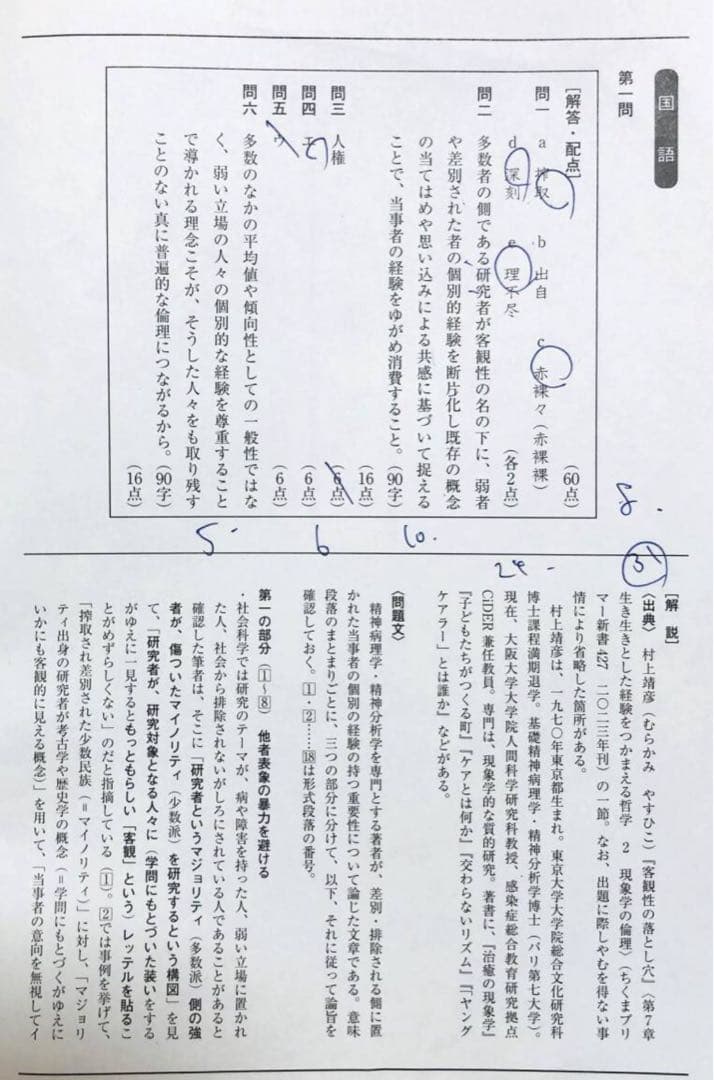 国語
第一問
［解答・配点］（60点）
問一 a 搾取 b 出自 c 赤裸々（赤裸裸）
d 深刻 e 理不尽 （各2点）
問二 多数者の側である研究者が客観性の名の下に、弱者
や差別された者の個別的経験を断片化し既存の概念
の当てはめや思い込みによる共感に基づいて捉える
ことで、当事者の経験をゆがめ消費すること。（90字）
（16点）
問三 人権 （6点）
問四 エ （6点）
問五 ウ （6点）
問六 多数のなかの平均値や傾向性としての一般性ではな
く、弱い立場の人々の個別的な経験を尊重すること
で導かれる理念こそが、そうした人々をも取り残す
ことのない真に普遍的な倫理につながるから。（90字）
（16点）
8.
10.
6
5.
31
24.
［解説］
〈出典〉 村上靖彦（むらかみ やすひこ）『客観性の落とし穴』〈第7章
生き生きとした経験をつかまえる哲学 2 現象学の倫理〉（ちくまプリ
マー新書427 二〇二三年刊）の一節。なお、出題に際しやむを得ない事
情により省略した箇所がある。
村上靖彦は、一九七〇年東京都生まれ。東京大学大学院総合文化研究科
博士課程満期退学。基礎精神病理学・精神分析学博士（パリ第七大学）。
現在、大阪大学大学院人間科学研究科教授、感染症総合教育研究拠点
CiDER兼任教員。専門は、現象学的な質的研究。著書に、『治癒の現象学』
『子どもたちがつくる町』『ケアとは何か』『交わらないリズム』『「ヤング
ケアラー」とは誰か』などがある。
〈問題文〉
精神病理学・精神分析学を専門とする著者が、差別・排除される側に置
かれた当事者の個別の経験の持つ重要性について論じた文章である。意味
段落のまとまりごとに、三つの部分に分けて、以下、それに従って論旨を
確認しておく。①・②……⑱は形式段落の番号。
第一の部分（①～⑧） 他者表象の暴力を避ける
・社会科学では研究のテーマが、病や障害を持った人、弱い立場に置かれ
た人、社会から排除されないがしろにされている人であることがあると
確認した筆者は、そこに「研究者というマジョリティ（多数派）側の強
者が、傷ついたマイノリティ（少数派）を研究するという構図」を見
て、「研究者が、研究対象となる人々に（学問にもとづいた装いをする
がゆえに一見するともっともらしい「客観」という）レッテルを貼るこ
とがめずらしくない」のだと指摘している（①。②では事例を挙げて、
「搾取され差別された少数民族（＝マイノリティ）」に対し、「マジョリ
ティ出身の研究者が考古学や歴史学の概念（＝学問にもとづくがゆえに
いかにも客観的に見える概念）」を用いて、「当事者の意向を無視してイ